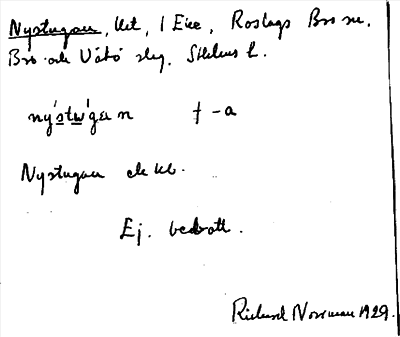 Nystugan, lht, i Eke, Roslags Bro sn,
Bro och Vätö slg, Sthlms l.
ny´stw`gan f -a
Nystugan ek kb.
Ej. bebott.
Richard Norrman 1929.